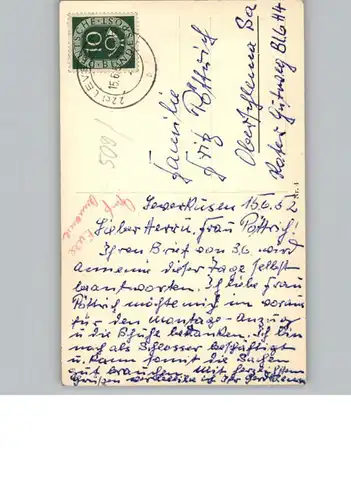 DEUTSCHE BUNDESPOST
10
LEVERKUSEN
22c
15.6.
Familie
Fritz Pöttrich
Oberschlema
Roter Gutweg Bl. 6 H4
509/
Leverkusen 15.6.52
Lieber Herr u. Frau Pöttrich!
Ihren Brief vom 3.6. wird
Annemie dieser Tage selbst
beantworten. Ich liebe Frau
Pöttrich möchte mich im voraus
für den Montage-Anzug
u die Schuhe bedanken. Ich bin
noch als Schlosser beschäftigt
u kann somit die Sachen
gut brauchen. Mit herzlichsten
Grüßen verbleibe ich Ihr
Eure